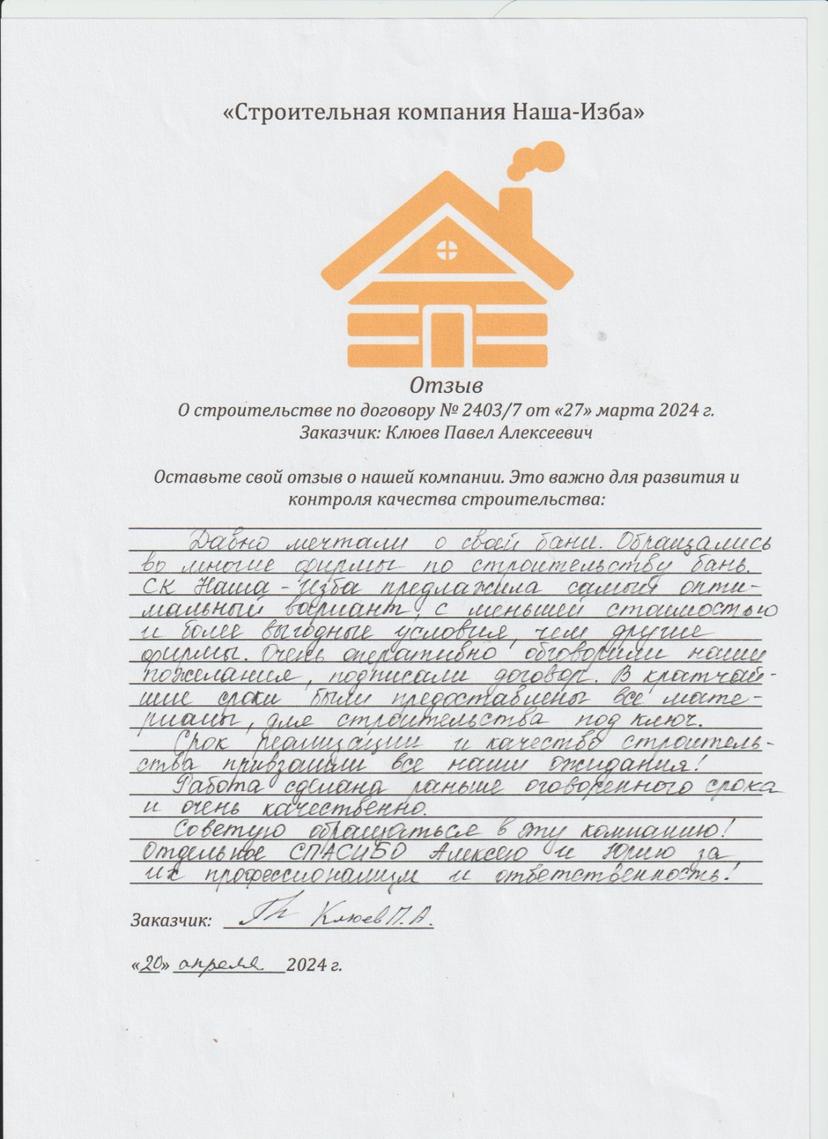 «Строительная компания Наша-Изба»
Отзыв
О строительстве по договору № 2403/7 от «27» марта 2024 г.
Заказчик: Клюев Павел Алексеевич
Оставьте свой отзыв о нашей компании. Это важно для развития и
контроля качества строительства:
Давно мечтали о своей бани. Обращались
во многие фирмы по строительству бань.
СК Наша-Изба предлажила самый опти-
мальный вариант, с меньшей стоимостью
и более выгодные условия, чем другие
фирмы. Очень оперативно обговорили наши
пожелания, подписали договор. В кратчай-
шие сроки были предоставлены все мате-
риалы, для строительства под ключ.
Срок реализации и качество строитель-
ства привзашли все наши ожидания!
Работа сделана раньше оговоренного срока
и очень качественно.
Советую обращаться в эту компанию!
Отдельное СПАСИБО Алексею и Юрию за
их профессионализм и ответственность!
Заказчик: Клюев П.А.
«20» апреля 2024 г.